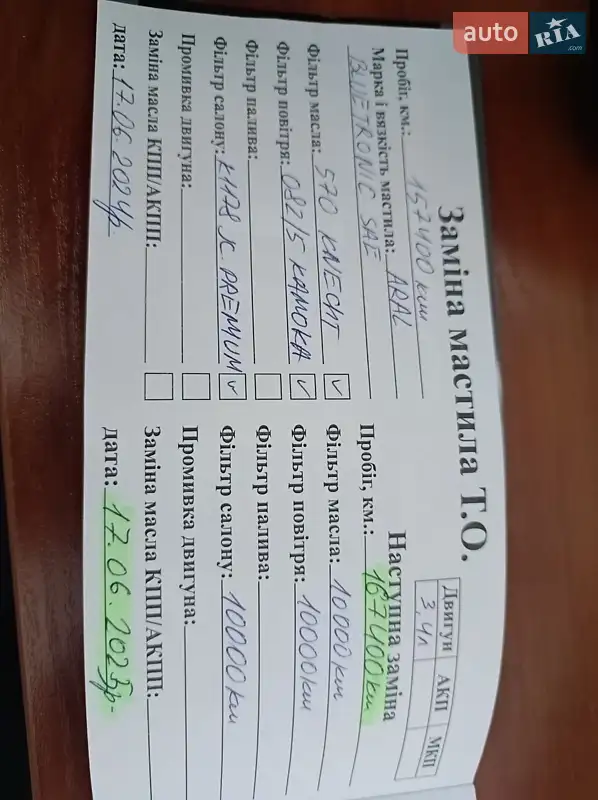 auto RIA .com
Заміна мастила Т.О.
Двигун АКП МКП
3,4л
Пробіг, км.: 157400 км
Марка і вязкість мастила: ARAL
BLUETRONIC SAE
Фільтр масла: 570 KNECHT ✓
Фільтр повітря: 082/5 KAMOKA ✓
Фільтр палива:
Фільтр салону: K1178 JC PREMIUM ✓
Промивка двигуна:
Заміна масла КПП/АКПП:
дата: 17.06.2024р.
Наступна заміна
Пробіг, км.: 167400 км
Фільтр масла: 10000 км
Фільтр повітря: 10000 км
Фільтр палива:
Фільтр салону: 10000 км
Промивка двигуна:
Заміна масла КПП/АКПП:
дата: 17.06.2025р-